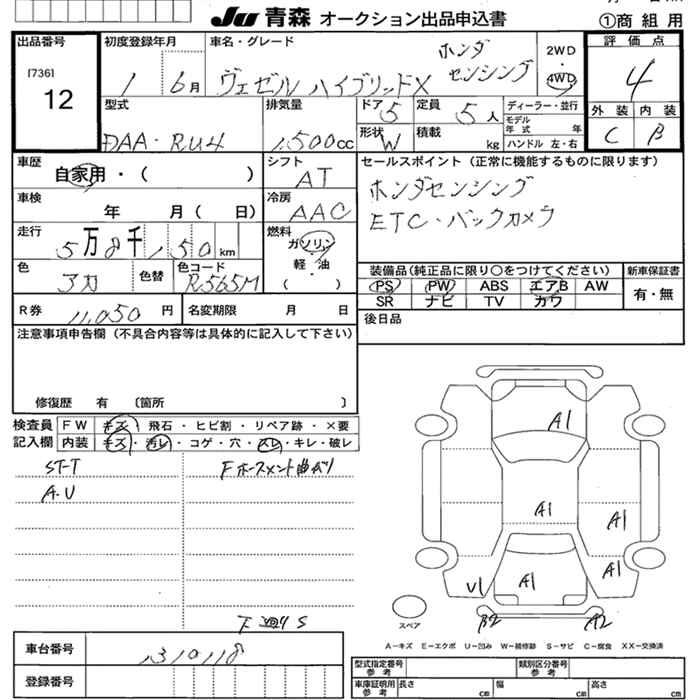 JU 青森 オークション出品申込書
①商組用
出品番号
[736]
12
初度登録年月
1 6月
車名・グレード
ホンダ
センシング
ヴェゼル ハイブリッドX
2WD
・
4WD
評価点
4
外装 内装
C B
型式
DAA・RU4
排気量
1,500cc
ドア 5
定員 5人
形状 W
積載 kg
ディーラー・並行
モデル
年式 年
ハンドル 左・右
車歴
自家用・( )
シフト
AT
セールスポイント(正常に機能するものに限ります)
ホンダセンシング
ETC・バックカメラ
車検
年 月( 日)
冷房
AAC
走行
5万8千150km
燃料
ガソリン
軽・油
( )
色
アカ
色替
色コード
R565M
装備品(純正品に限り○をつけてください)
PS PW ABS エアB AW
SR ナビ TV カワ
新車保証書
有・無
R券 11,050円
名変期限 月 日
後日品
注意事項申告欄(不具合内容等は具体的に記入して下さい)
修復歴 有 〔箇所 〕
検査員 FW キズ・飛石・ヒビ割・リペア跡・×要
記入欄 内装 キズ・汚レ・コゲ・穴・スレ・キレ・破レ
ST-T
A・U
Fホースメント曲がり
A1
A1
A1
A1
A1
U1
B2
A2
スペア
A-キズ E-エクボ U-凹み W-補修跡 S-サビ C-腐食 XX-交換済
車台番号
1310118
登録番号
型式指定番号
参考
類別区分番号
参考
車庫証明用
参考
長さ cm
幅 cm
高さ cm